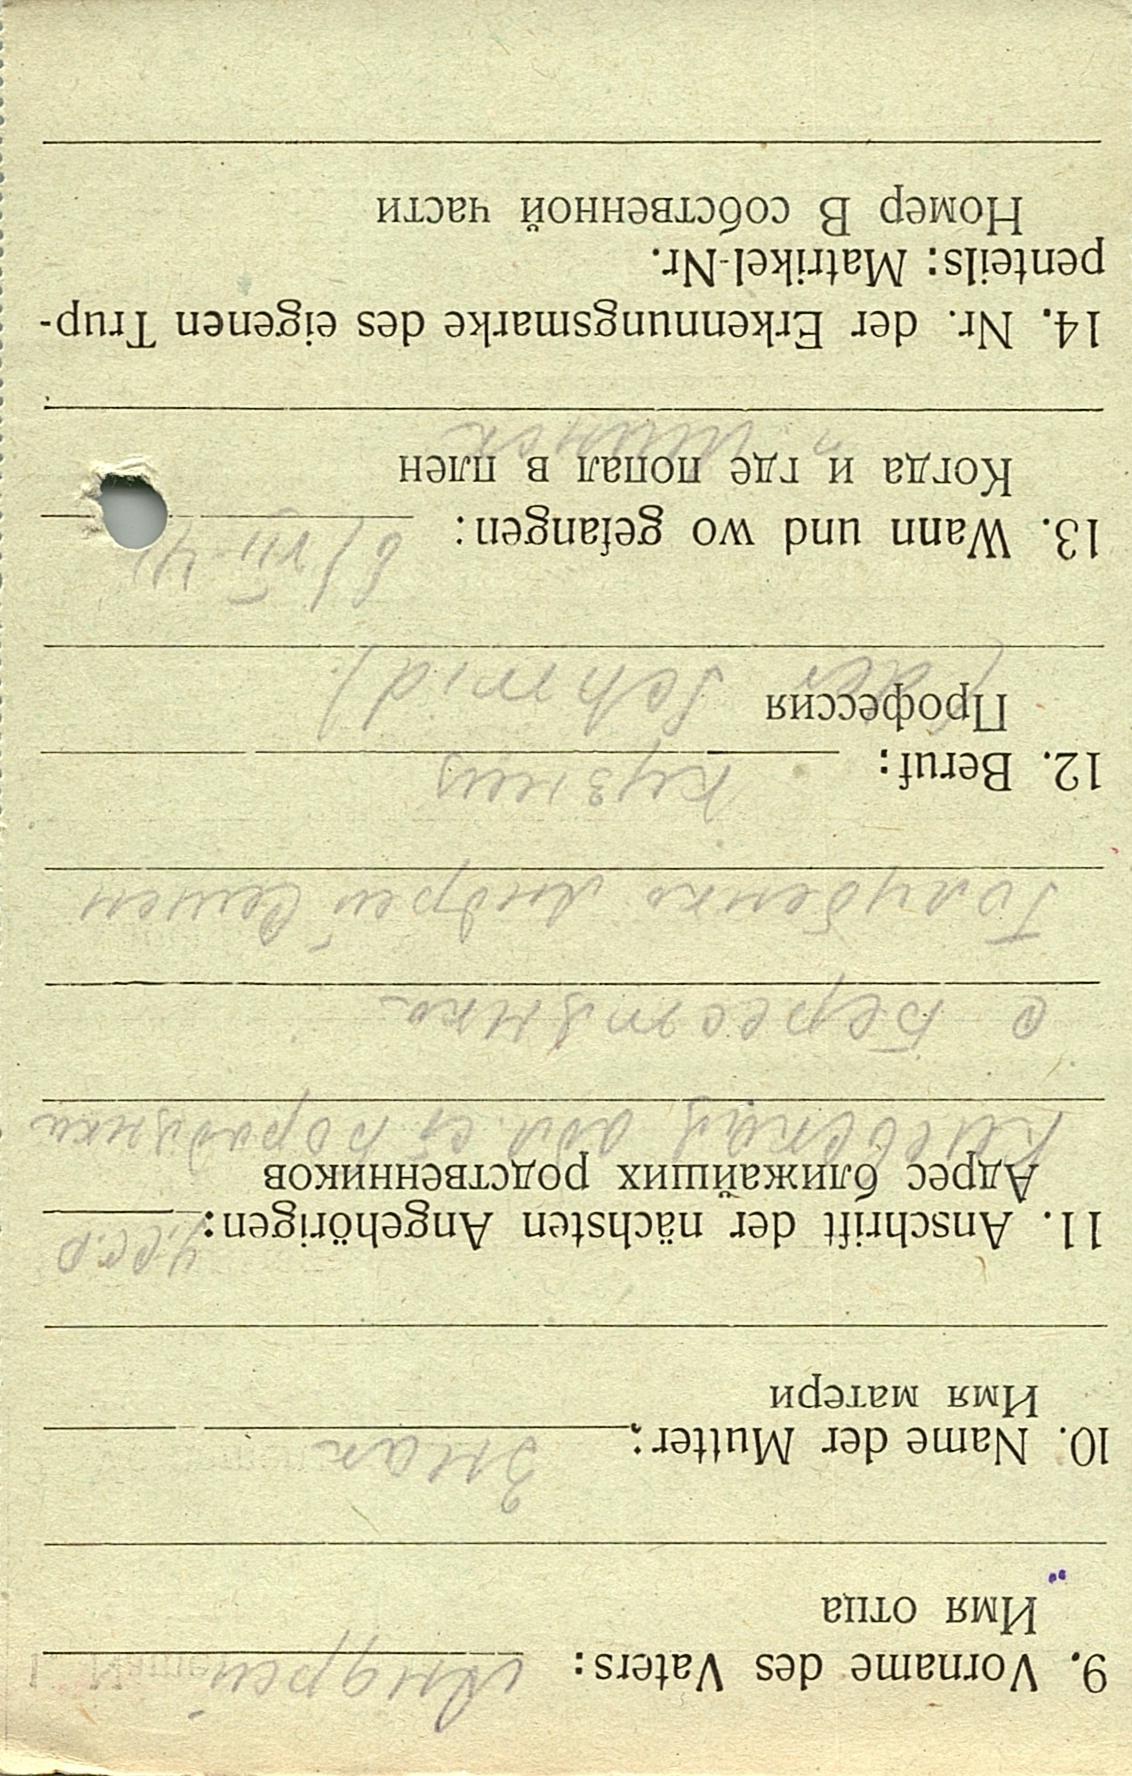 9. Vorname des Vaters: Андрей
Имя отца
10. Name der Mutter:
Имя матери
11. Anschrift der nächsten Angehörigen: УССР
Адрес ближайших родственников
Киевская обл. ст Бородянка
с Берестянка
Голубенко Андрей Семен
12. Beruf: кузнец
Профессия
(der Schmid)
13. Wann und wo gefangen: 6/VII-41
Когда и где попал в плен
14. Nr. der Erkennungsmarke des eigenen Trup-
penteils: Matrikel-Nr.
Номер В собственной части